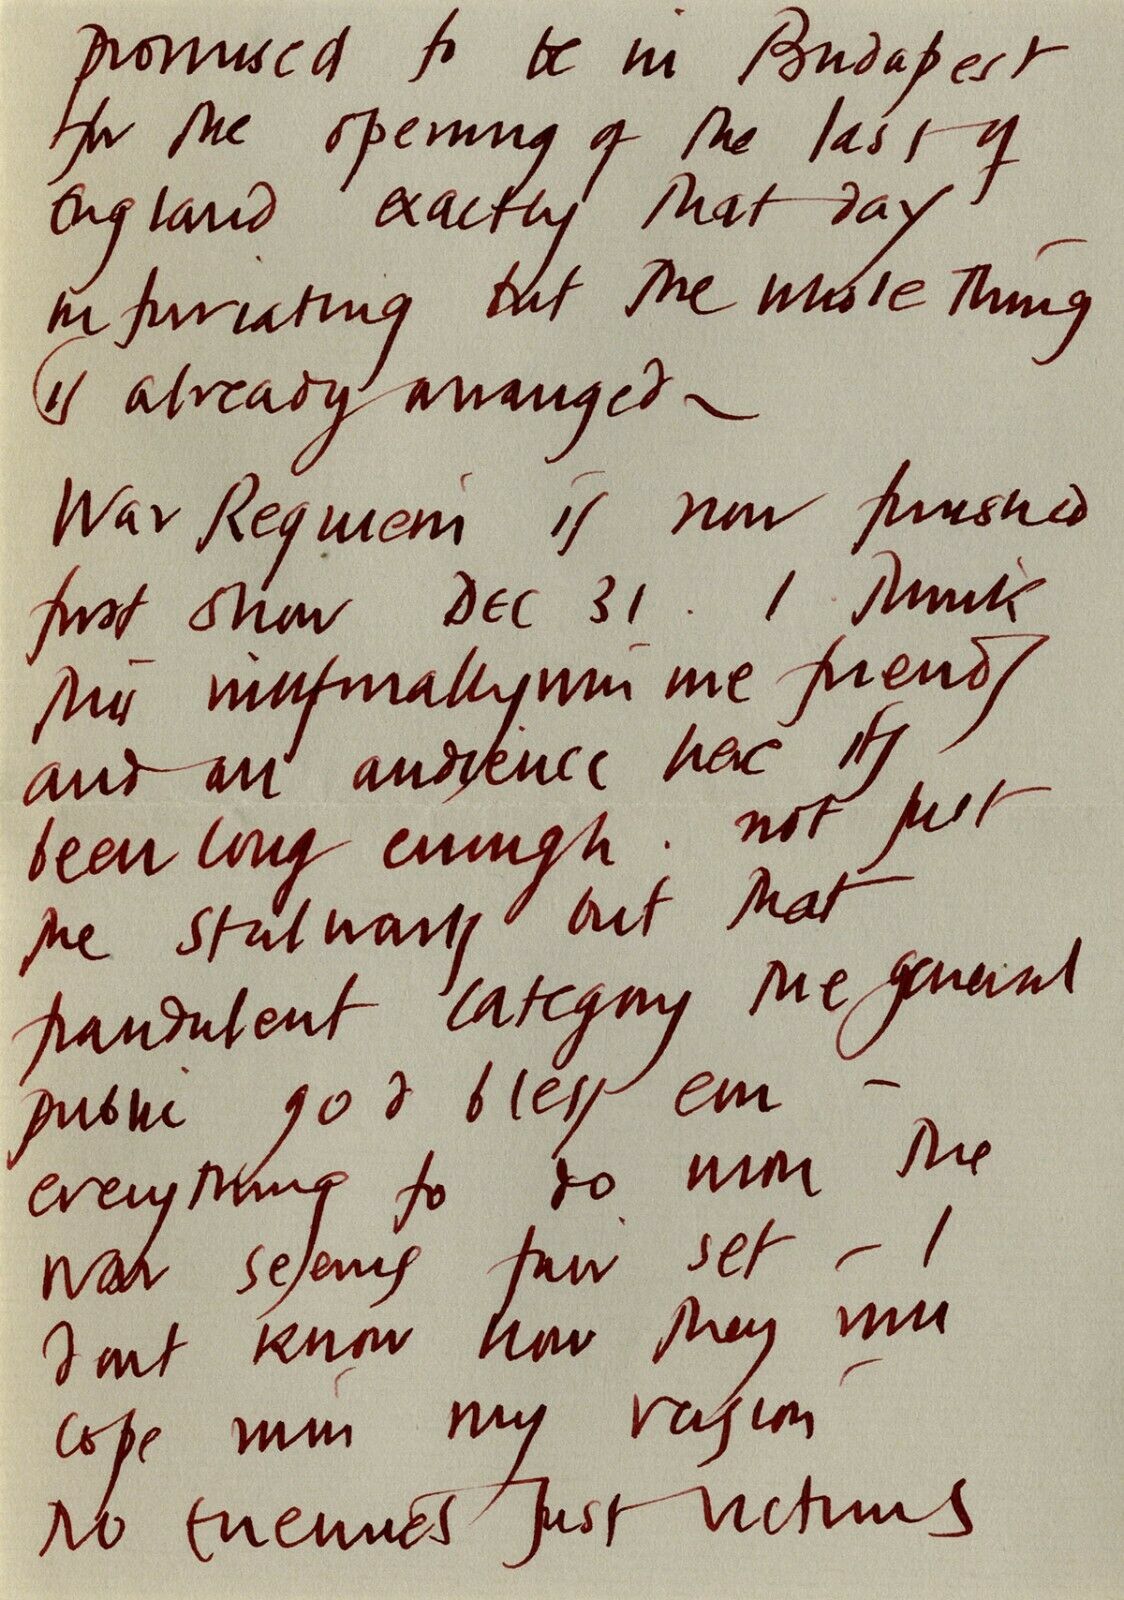 promised to be in Budapest
for the opening of the last of
England exactly that day
infuriating but the whole thing
is already arranged
War Requiem is now finished
first show DEC 31. I think
this will finally win me friends
and an audience here its
been long enough. not just
the stalwarts but that
fraudulent category the general
public god bless em –
everything to do with the
war seems fair set – I
dont know how they will
cope with my version
No Enemies Just victims